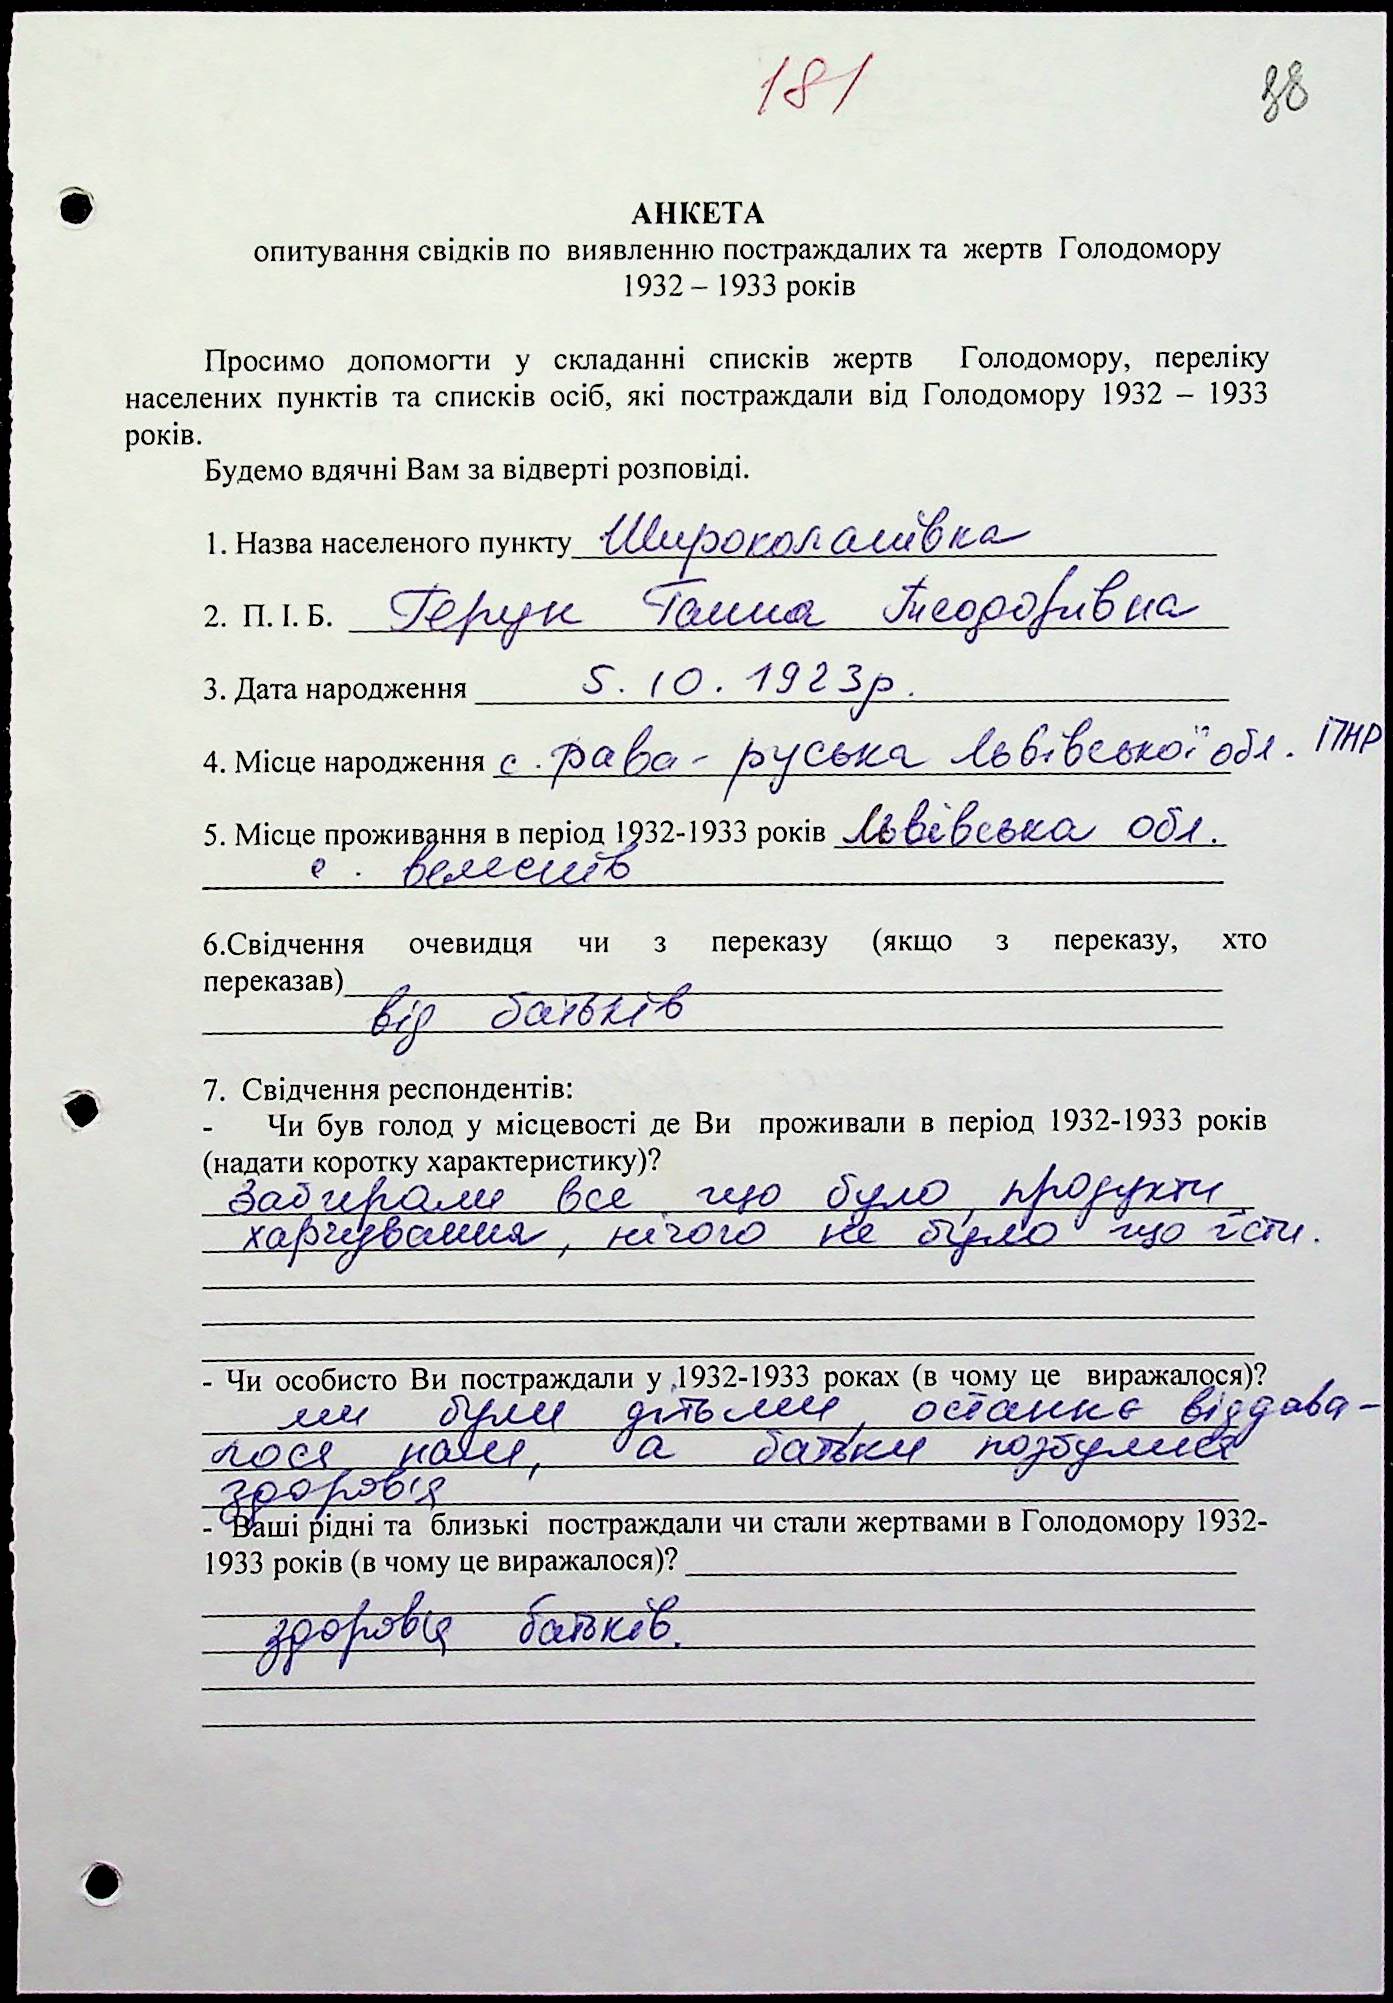 181
88
АНКЕТА
опитування свідків по виявленню постраждалих та жертв Голодомору
1932 – 1933 років
Просимо допомогти у складанні списків жертв Голодомору, переліку
населених пунктів та списків осіб, які постраждали від Голодомору 1932 – 1933
років.
Будемо вдячні Вам за відверті розповіді.
1. Назва населеного пункту Широколанівка
2. П. І. Б. Герук Ганна Теодорівна
3. Дата народження 5.10.1923р.
4. Місце народження с. Рава-руська Львівської обл. ПНР
5. Місце проживання в період 1932-1933 років Львівська обл.
с.
6.Свідчення очевидця чи з переказу (якщо з переказу, хто
переказав)
від батьків
7. Свідчення респондентів:
- Чи був голод у місцевості де Ви проживали в період 1932-1933 років
(надати коротку характеристику)?
Забирали все що було, продукти
харчування, нічого не було що їсти.
- Чи особисто Ви постраждали у 1932-1933 роках (в чому це виражалося)?
ми були дітьми, останнє віддава-
лося нам, а батьки позбулися
здоров'я
- Ваші рідні та близькі постраждали чи стали жертвами в Голодомору 1932-
1933 років (в чому це виражалося)?
здоров'я батьків.